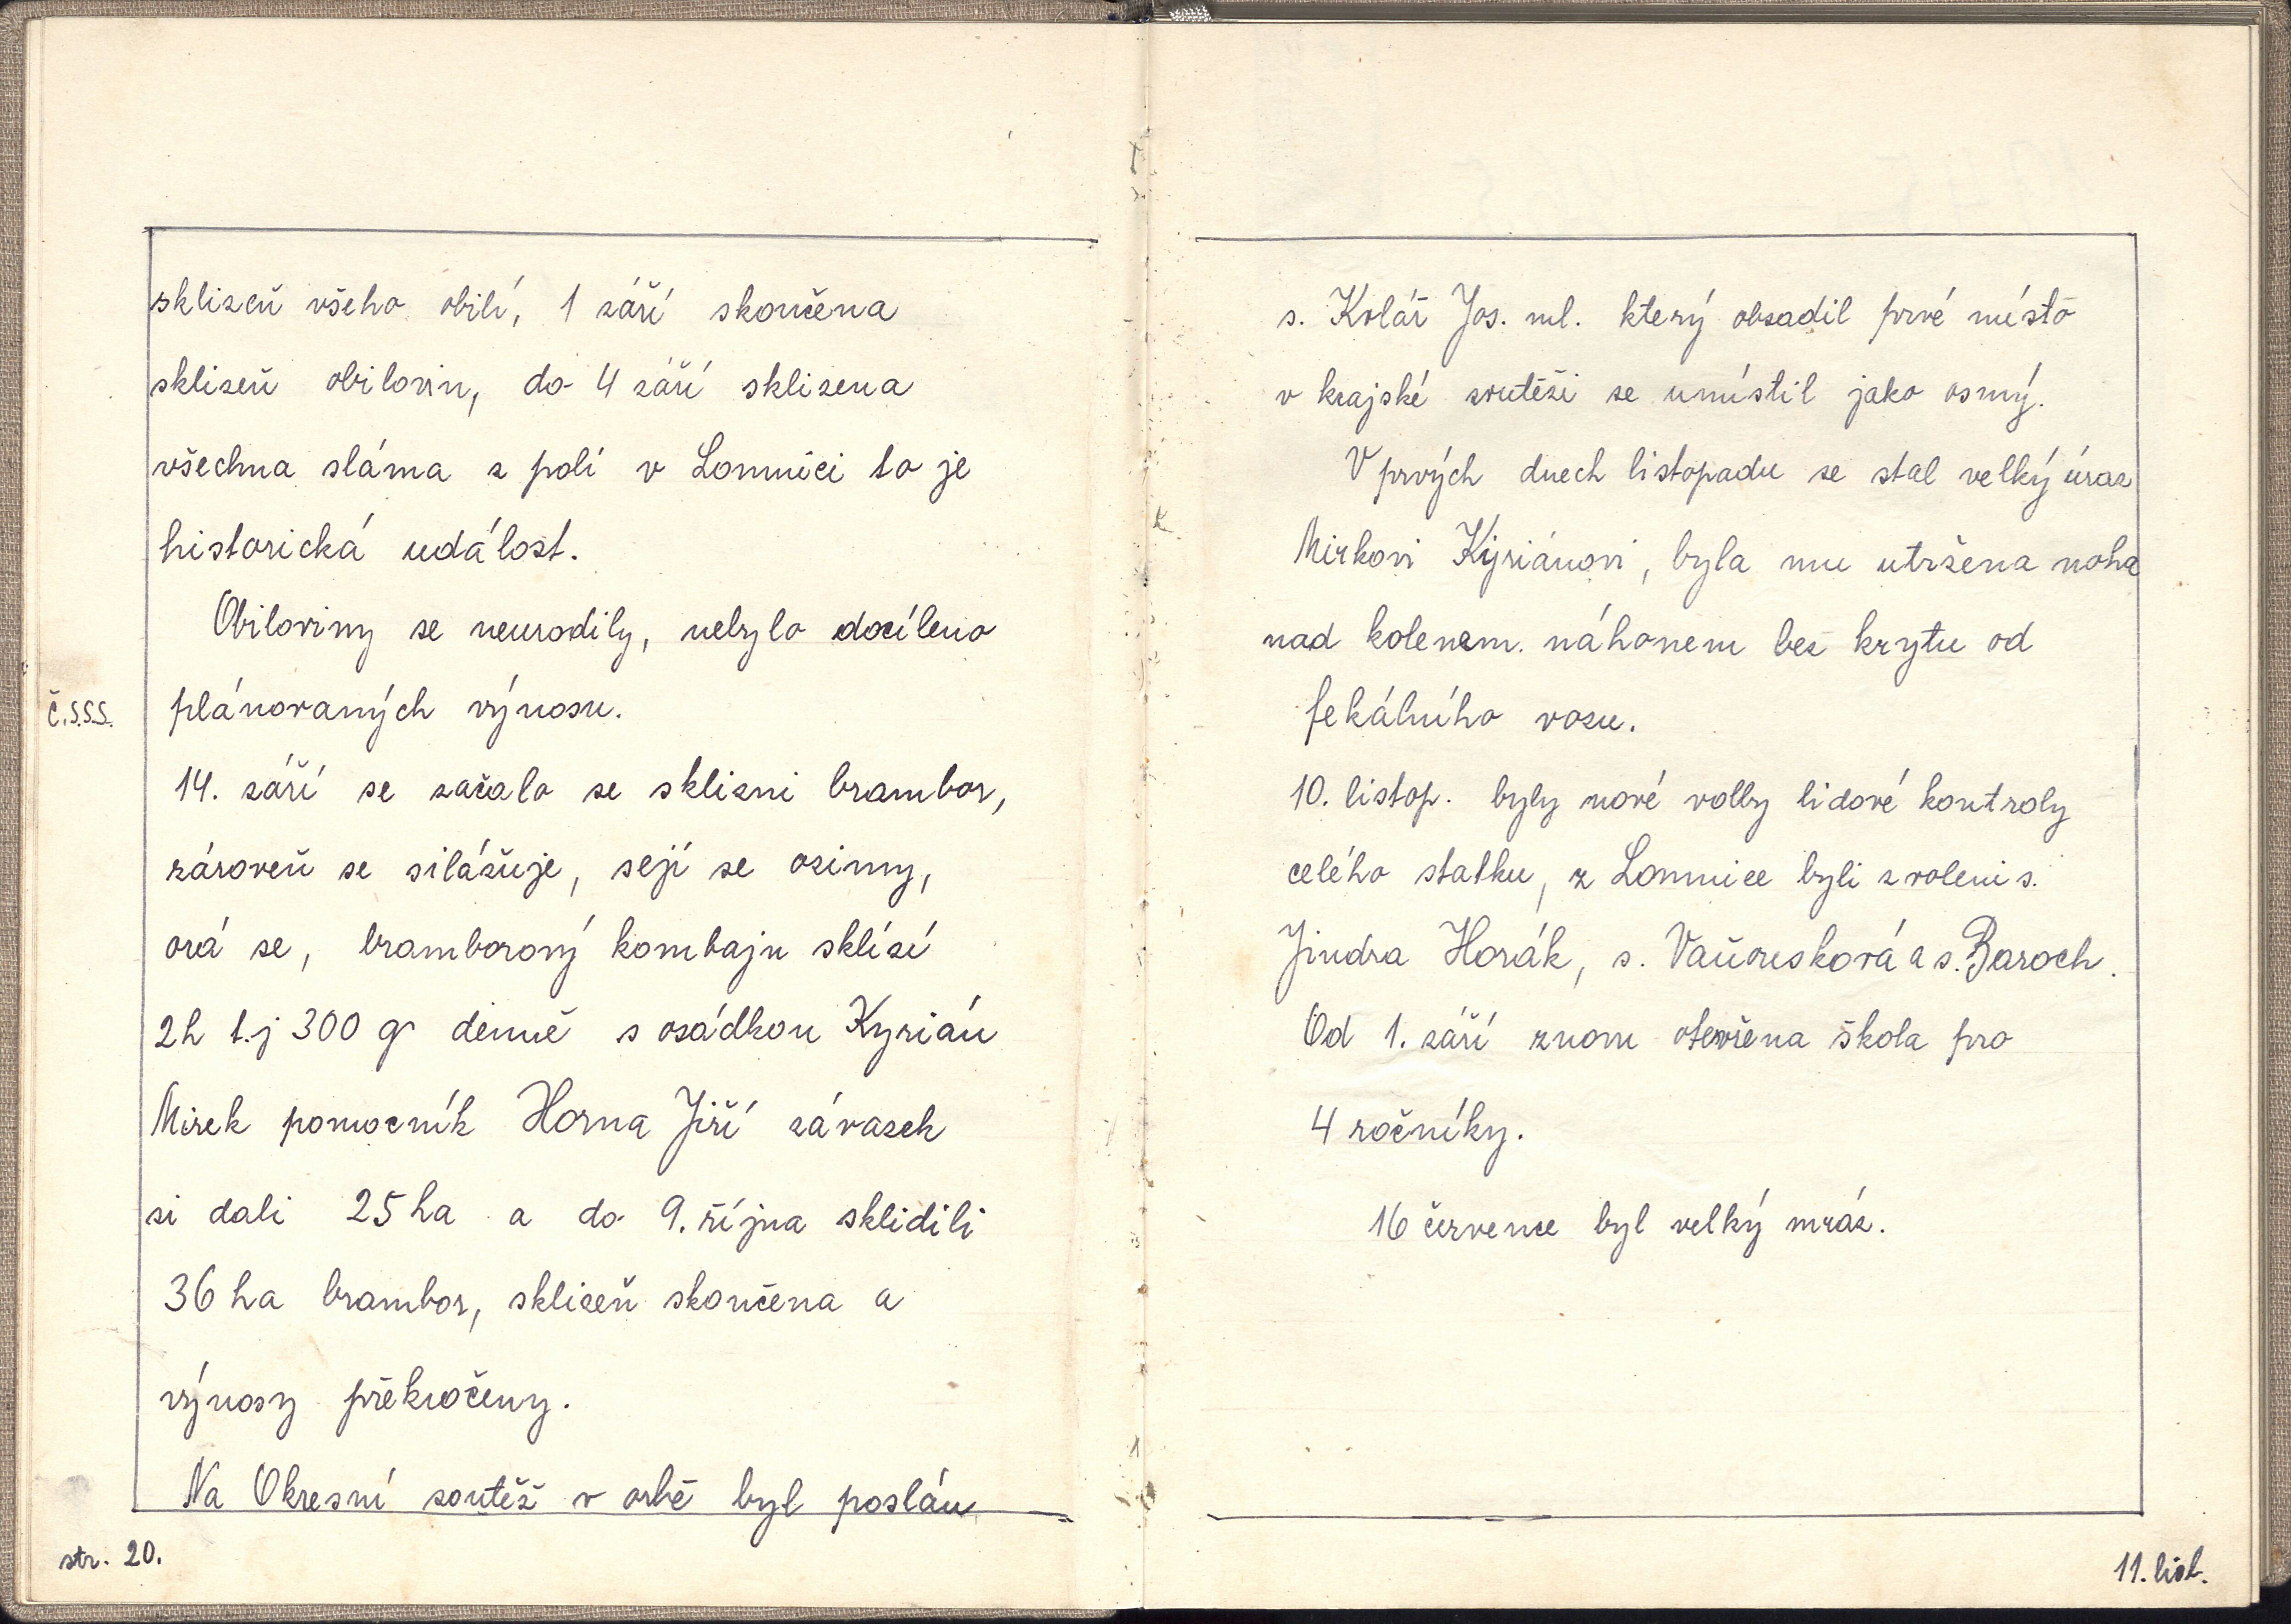 sklizeň všeho obilí, 1 září skončena
sklizeň obilovin, do 4 září sklizena
všechna sláma z polí v Lomnici to je
historická událost.
Obiloviny se neurodily, nebylo docíleno
Č.S.S.S.
plánovaných výnosu.
14. září se začalo se sklizni brambor,
zároveň se silážuje, sejí se ozimy,
orá se, bramborový kombajn sklízí
2h t.j 300 q denně s osádkou Kyrián
Mirek pomocník Horna Jiří závazek
si dali 25 ha a do 9. října sklidili
36 ha brambor, sklizeň skončena a
výnosy překročeny.
Na Okresní soutěž v orbě byl poslán
str. 20.
s. Kolář Jos. ml. který obsadil prvé místo
v krajské soutěži se umístil jako osmý.
V prvých dnech listopadu se stal velký úraz
Mirkovi Kyriánovi, byla mu utržena noha
nad kolenem. náhonem bez krytu od
fekálního vozu.
10. listop. byly nové volby lidové kontroly
celého statku, z Lomnice byli zvoleni s.
Jindra Horák, s. Vaňousková a s. Baroch.
Od 1. září znovu otevřena škola pro
4 ročníky.
16 července byl velký mráz.
11. list.